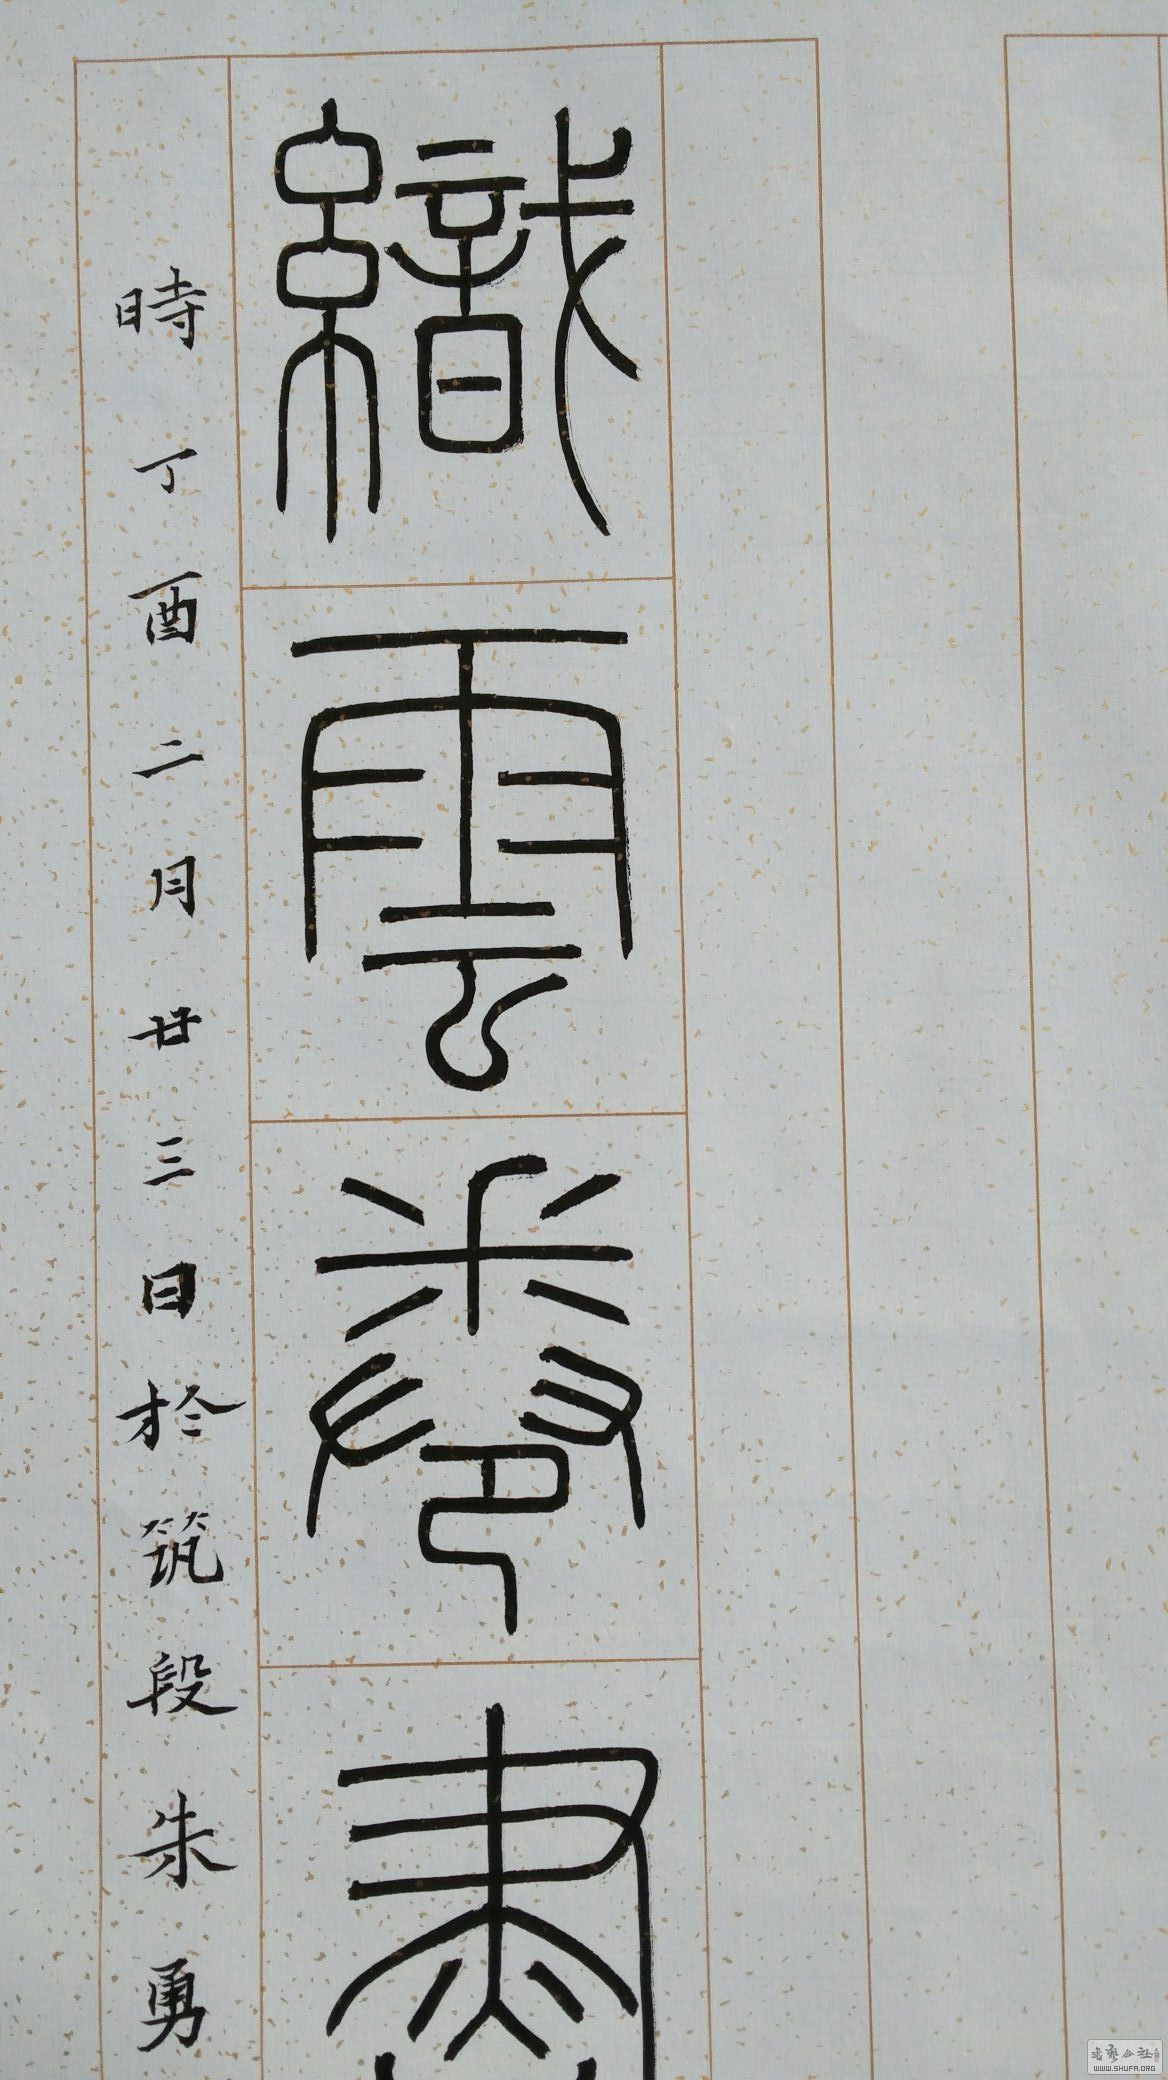 織雲卷盡
時丁酉二月廿三日於筑段朱勇
书艺公社
WWW.SHUFA.ORG